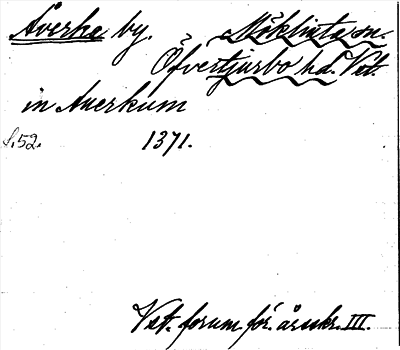 Åverke by. Möklinta sn.
Öfvertjurbo hd. Vst.
in Auerkum
s. 52. 1371.
Vst. fornm för. årsskr. III.